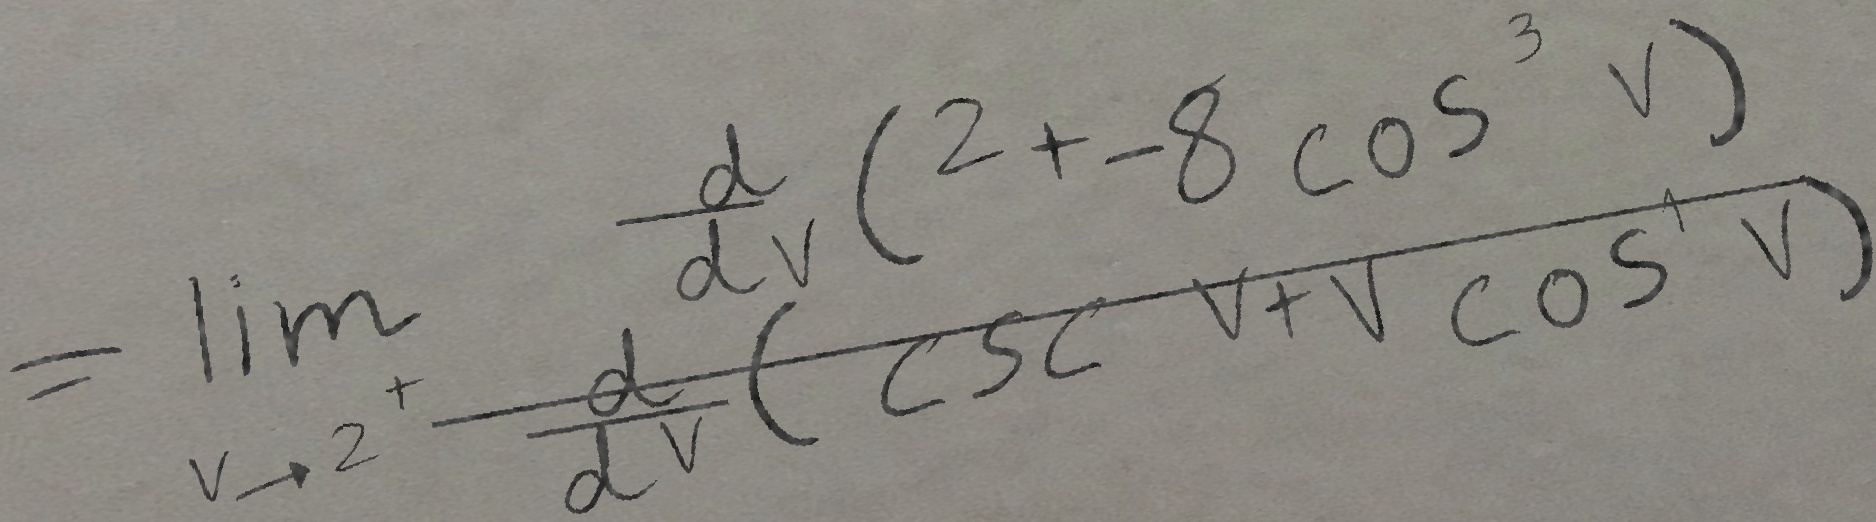 = \lim_{v \to 2^+} \frac{\frac{d}{dv}(2 + -8 \cos^3 v)}{\frac{d}{dv}(\csc v + v \cos^1 v)}